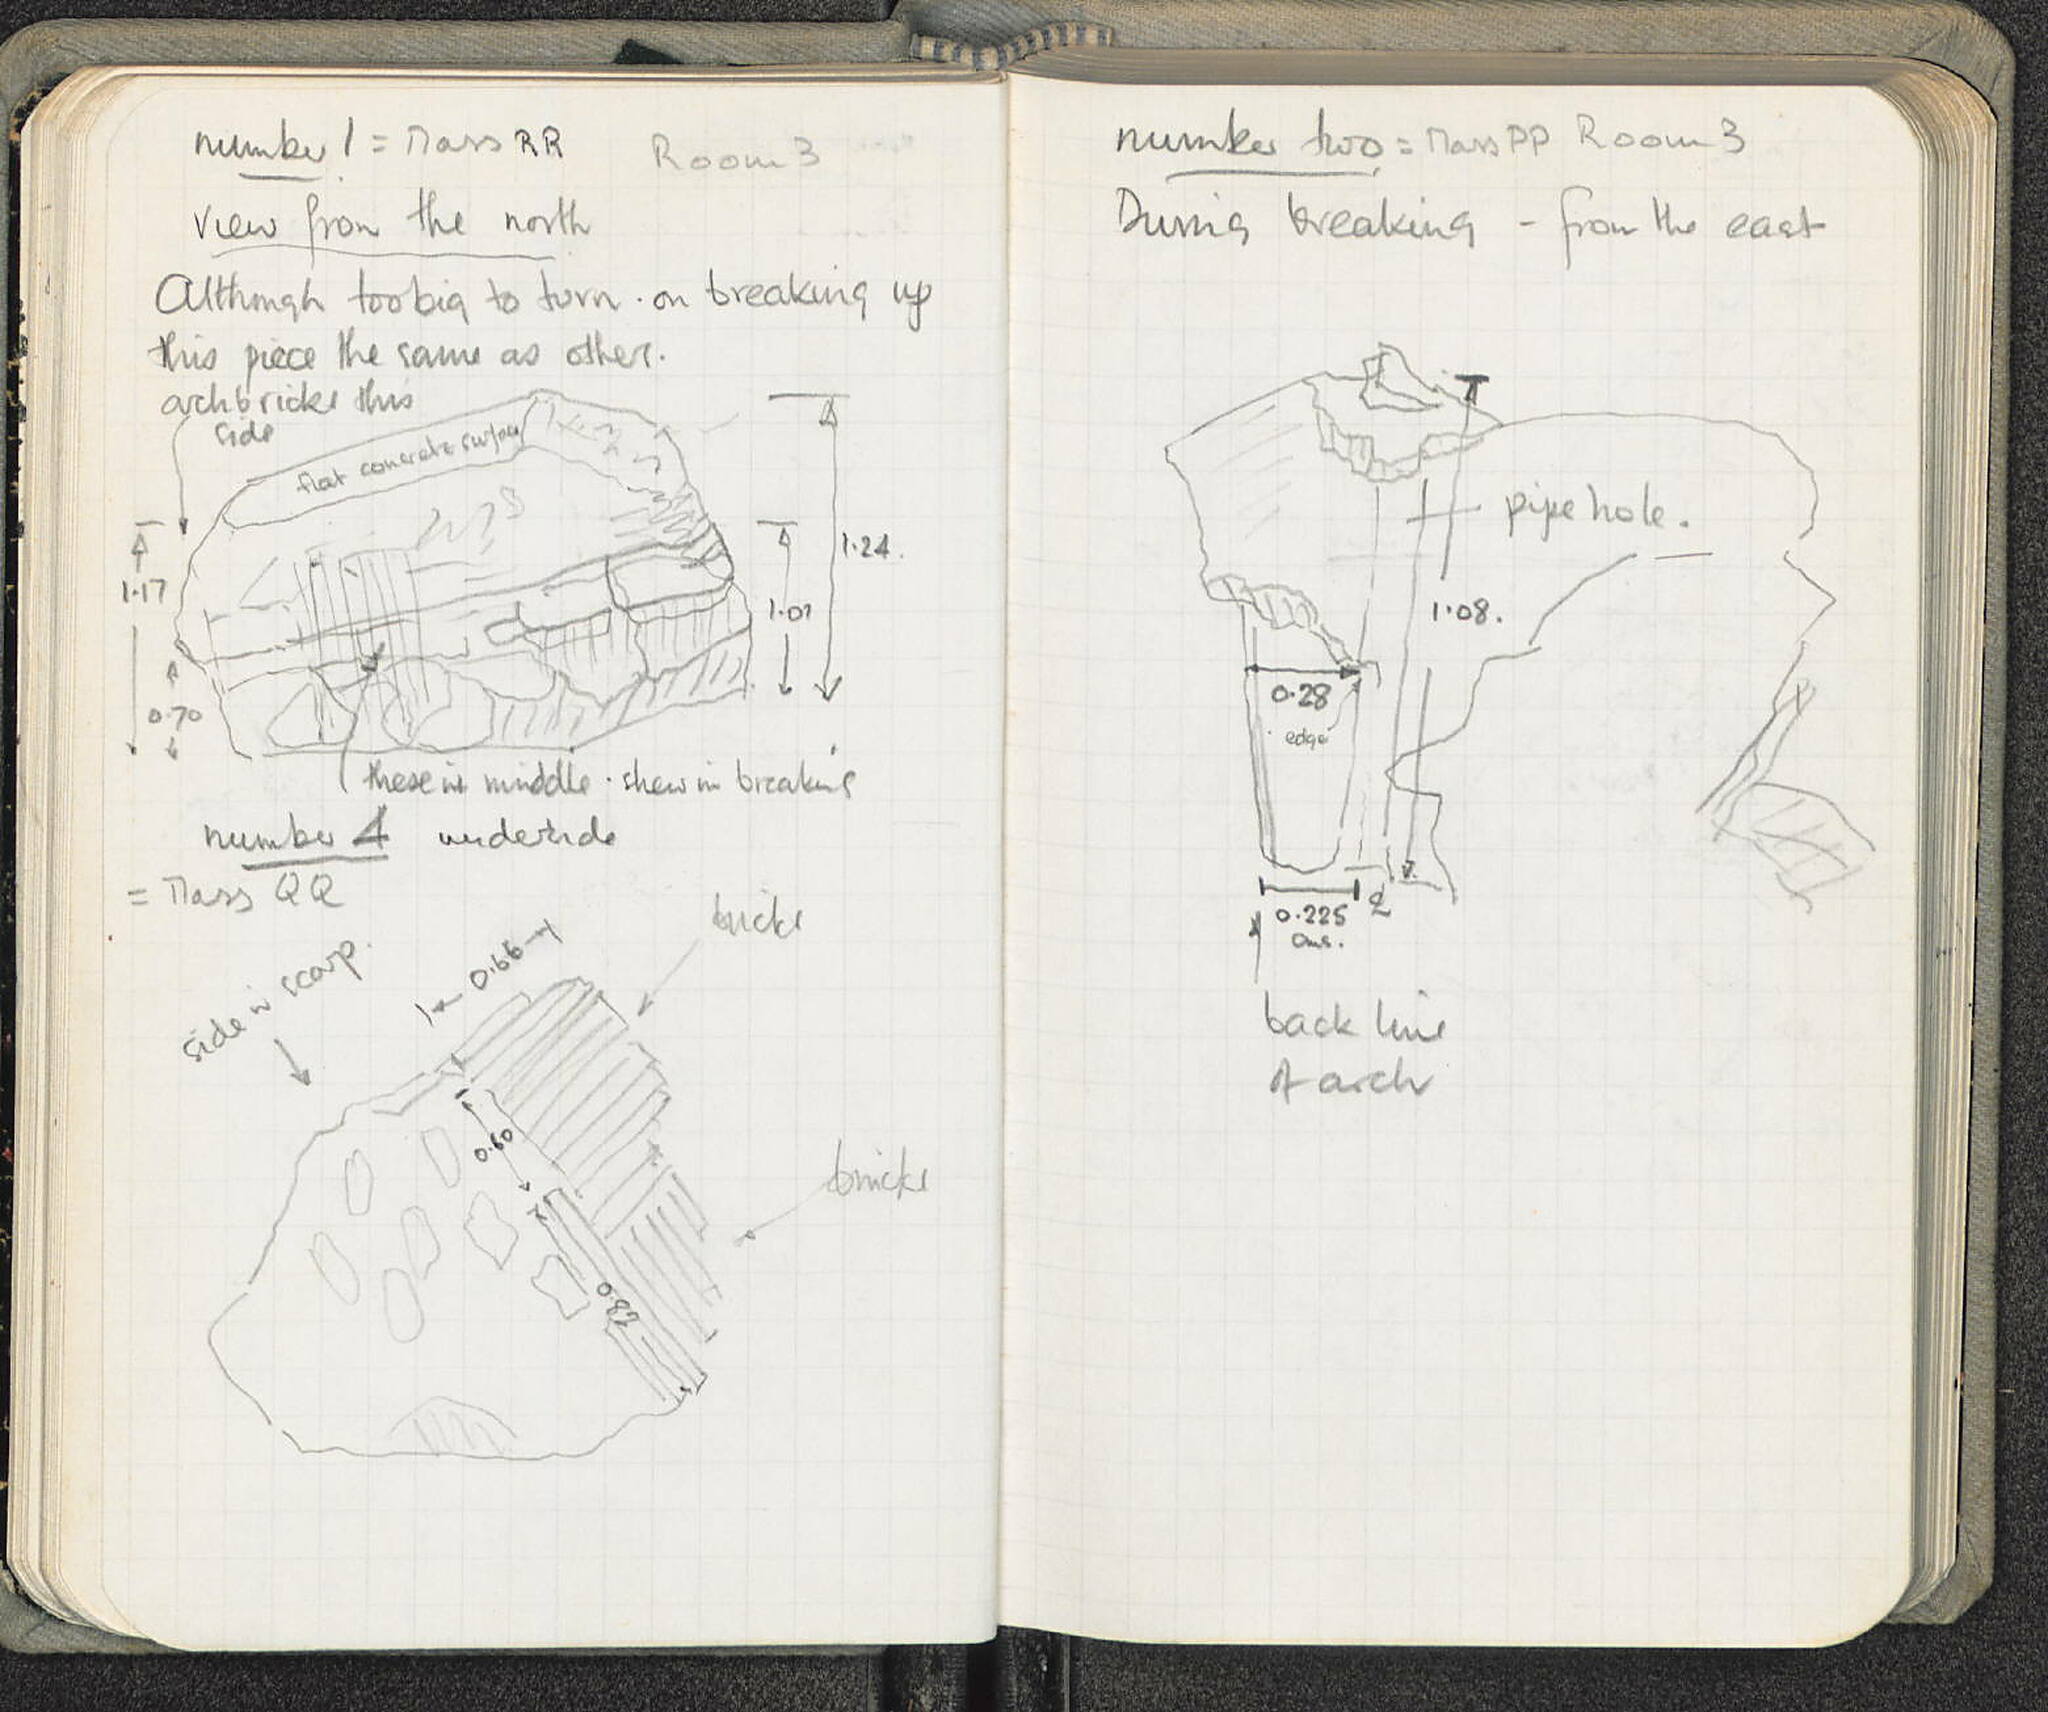 number 1 = Mass RR Room 3
view from the north
Although too big to turn · on breaking up
this piece the same as other.
arch bricks this
side
flat concrete surface
1.17
0.70
1.01
1.24.
these in middle · shew in breaking
number 4 underside
= Mass QQ
side in scarp.
0.66
bricks
0.60
bricks
0.82
number two = Mass PP Room 3
During breaking - from the east
pipe hole.
1.08.
0.28
edge
0.225
back line
of arch